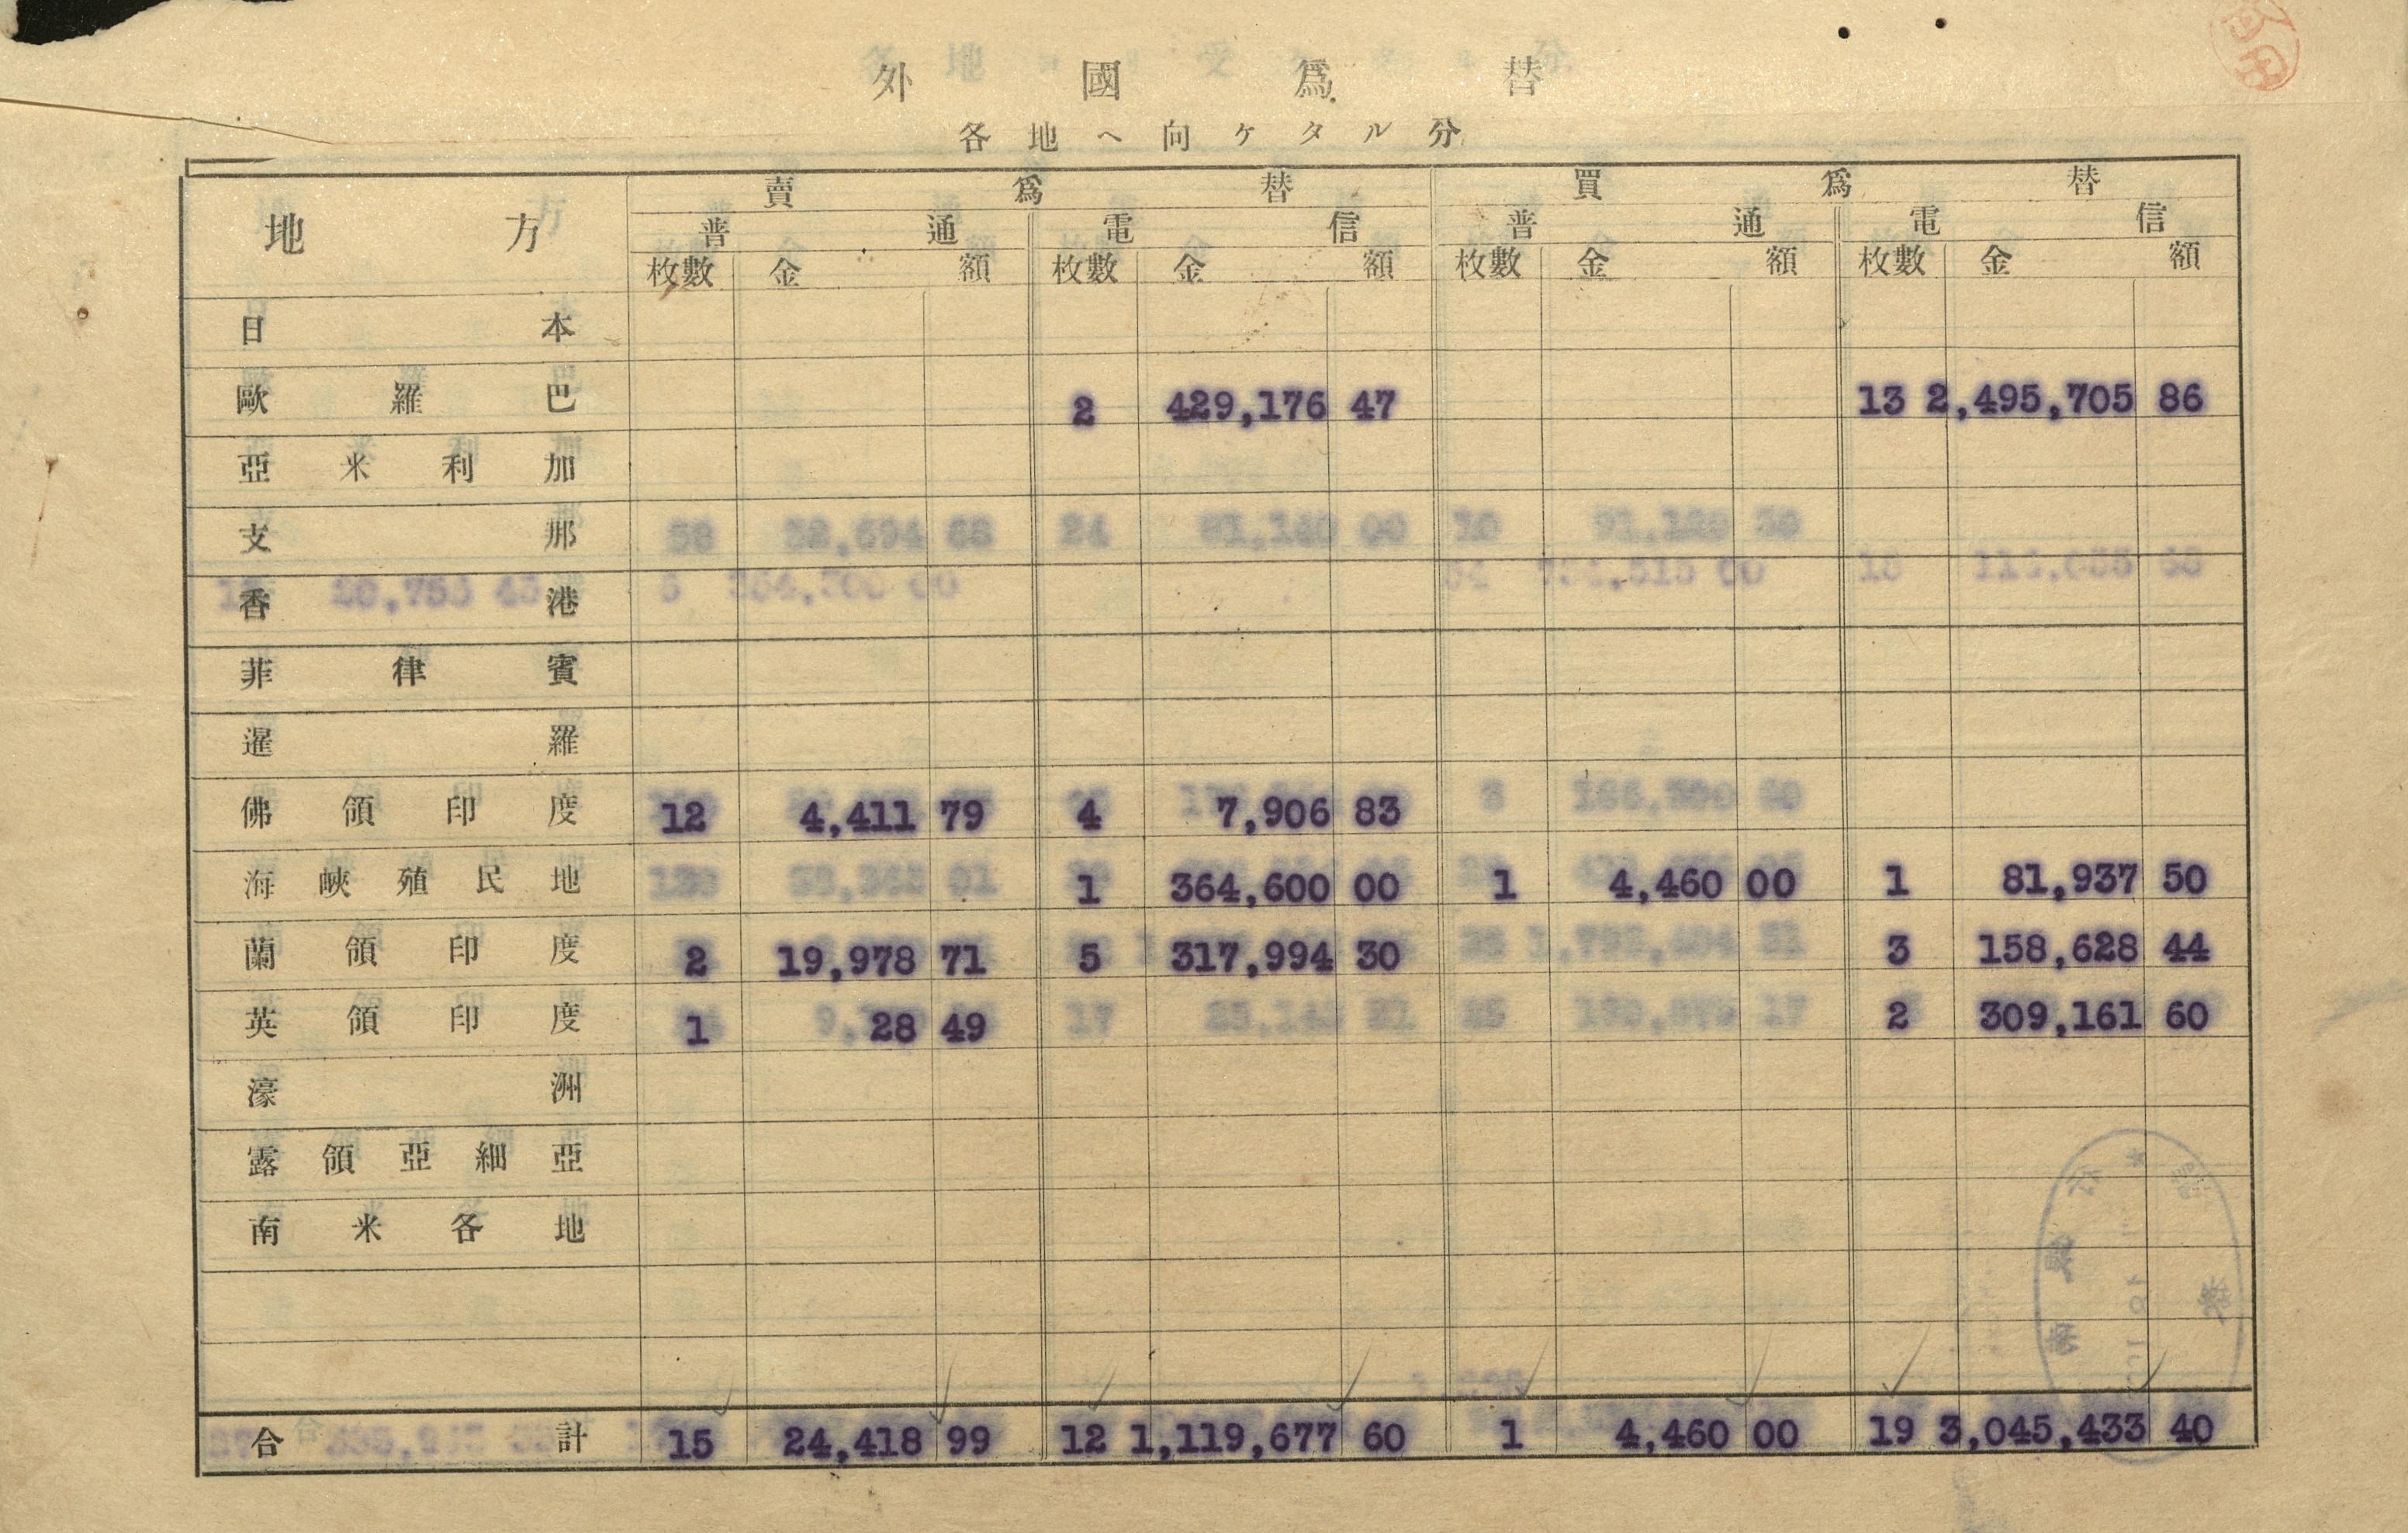 外國爲替
各地へ向ケタル分
地方 賣爲替 買爲替
普通 電信 普通 電信
枚數 金額 枚數 金額 枚數 金額 枚數 金額
日本
歐羅巴 2 429,176 47 13 2,495,705 86
亞米利加
支那
香港
菲律賓
暹羅
佛領印度 12 4,411 79 4 7,906 83
海峽殖民地 1 364,600 00 1 4,460 00 1 81,937 50
蘭領印度 2 19,978 71 5 317,994 30 3 158,628 44
英領印度 1 28 49 2 309,161 60
濠洲
露領亞細亞
南米各地
合計 15 24,418 99 12 1,119,677 60 1 4,460 00 19 3,045,433 40